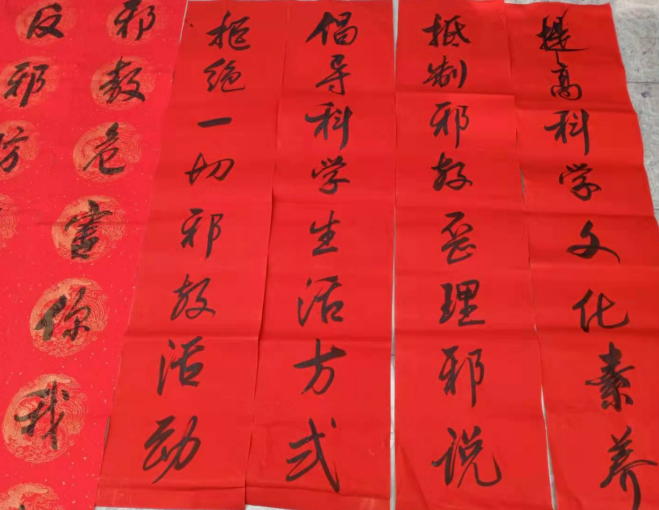 提高科学文化素养
抵制邪教歪理邪说
倡导科学生活方式
拒绝一切邪教活动
邪教危害你我
反邪防